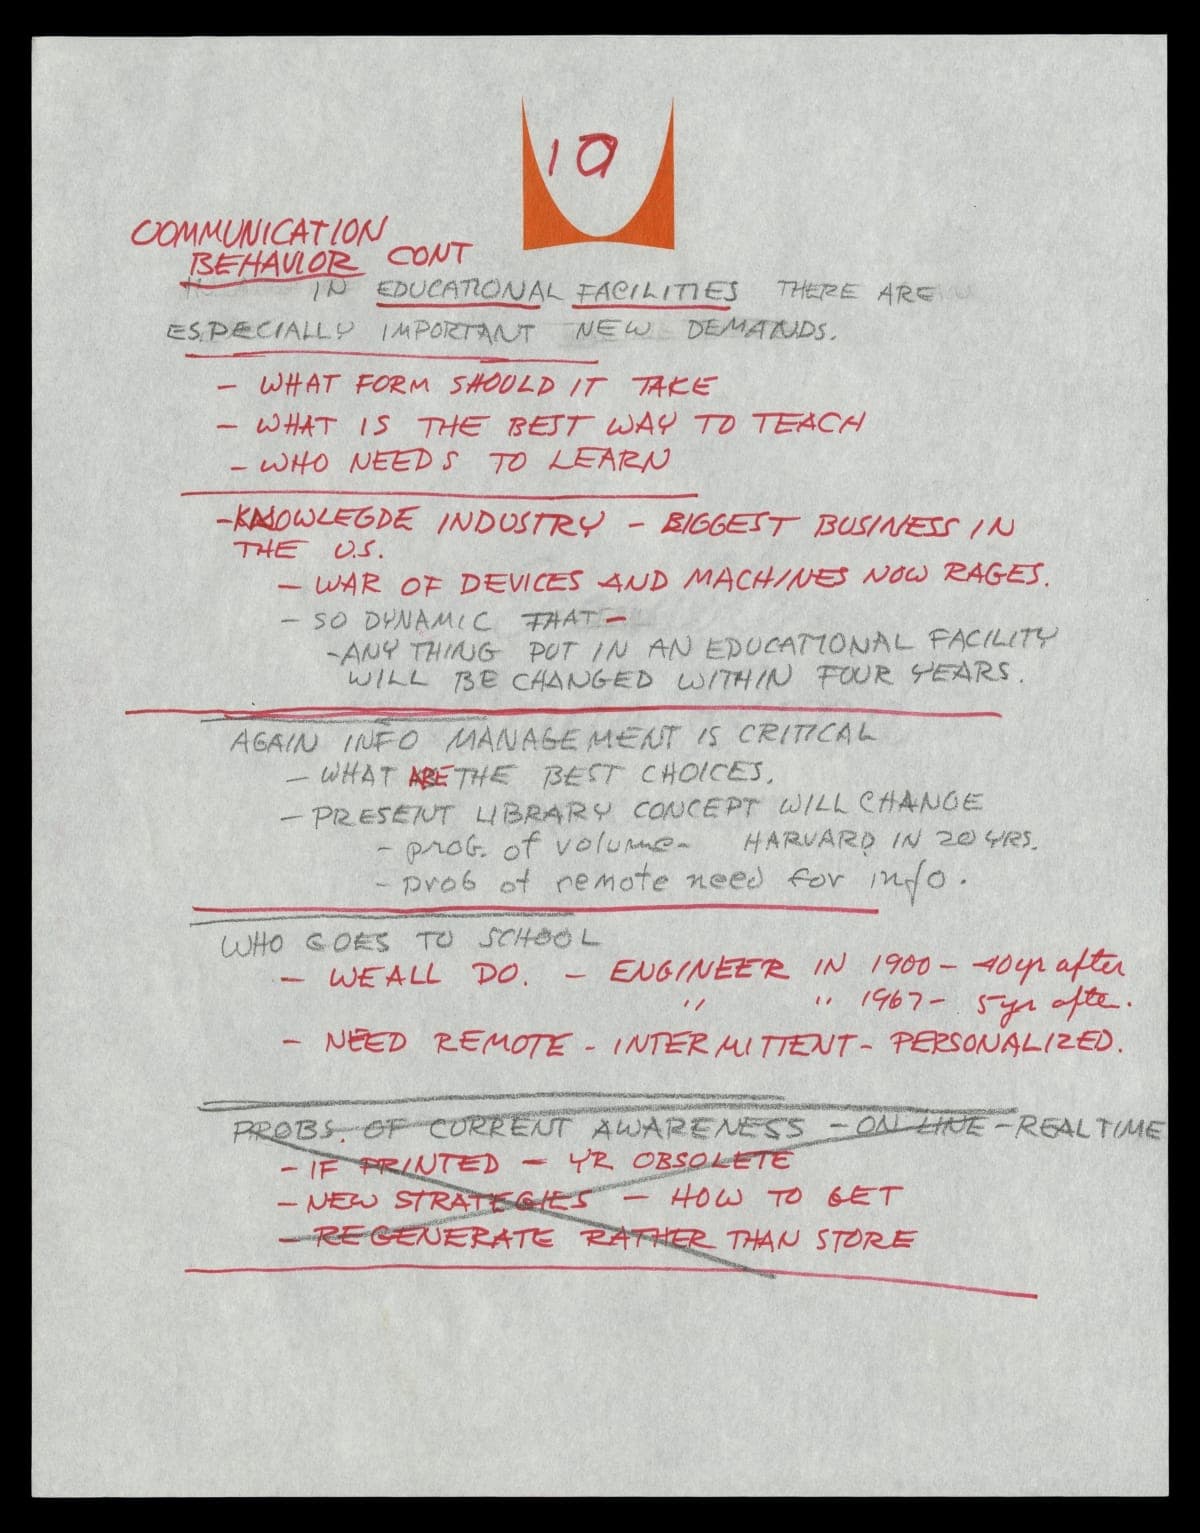 10
COMMUNICATION
BEHAVIOR CONT
IN EDUCATIONAL FACILITIES THERE ARE
ESPECIALLY IMPORTANT NEW DEMANDS.
- WHAT FORM SHOULD IT TAKE
- WHAT IS THE BEST WAY TO TEACH
- WHO NEEDS TO LEARN
- KNOWLEGDE INDUSTRY - BIGGEST BUSINESS IN
THE U.S.
- WAR OF DEVICES AND MACHINES NOW RAGES.
- SO DYNAMIC THAT -
- ANY THING PUT IN AN EDUCATIONAL FACILITY
WILL BE CHANGED WITHIN FOUR YEARS.
AGAIN INFO MANAGEMENT IS CRITICAL
- WHAT ARE THE BEST CHOICES.
- PRESENT LIBRARY CONCEPT WILL CHANGE
- prob. of volume - HARVARD IN 20 YRS.
- prob of remote need for info.
WHO GOES TO SCHOOL
- WE ALL DO. - ENGINEER IN 1900 - 40 yr after
" " 1967 - 5 yr afte.
- NEED REMOTE - INTERMITTENT - PERSONALIZED.
PROBS. OF CURRENT AWARENESS - ON LINE - REAL TIME
- IF PRINTED - YR OBSOLETE
- NEW STRATEGIES - HOW TO GET
- REGENERATE RATHER THAN STORE